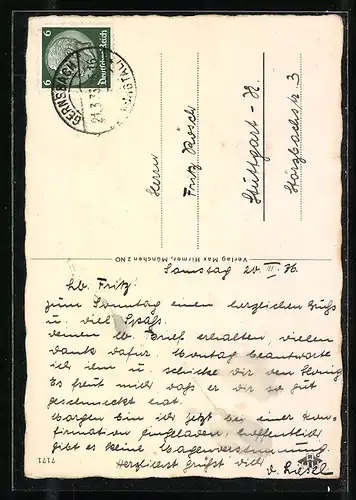 6 Deutsches Reich 6
GERNSBACH
(MURGTAL)
21.3.3
Herrn
Fritz Rösch
Stuttgart-N.
str. 3
Verlag Max Hirmer, München 2 NO
7171
Samstag 20 III 36.
Lb. Fritz!
zum Sonntag einen herzlichen Gruß
u. viel Spaß.
deinen lb. Brief erhalten, vielen
Dank dafür. Montag beantworte
ich ihn u. schicke dir den Honig
Es freut mich daß er dir so gut
geschmeckt hat.
Morgen bin ich jetzt bei einer Kon-
firmation eingeladen, hoffentlich
gibt es keine Magenverstimmung.
Herzlichst grüßt dich
d. Liesel